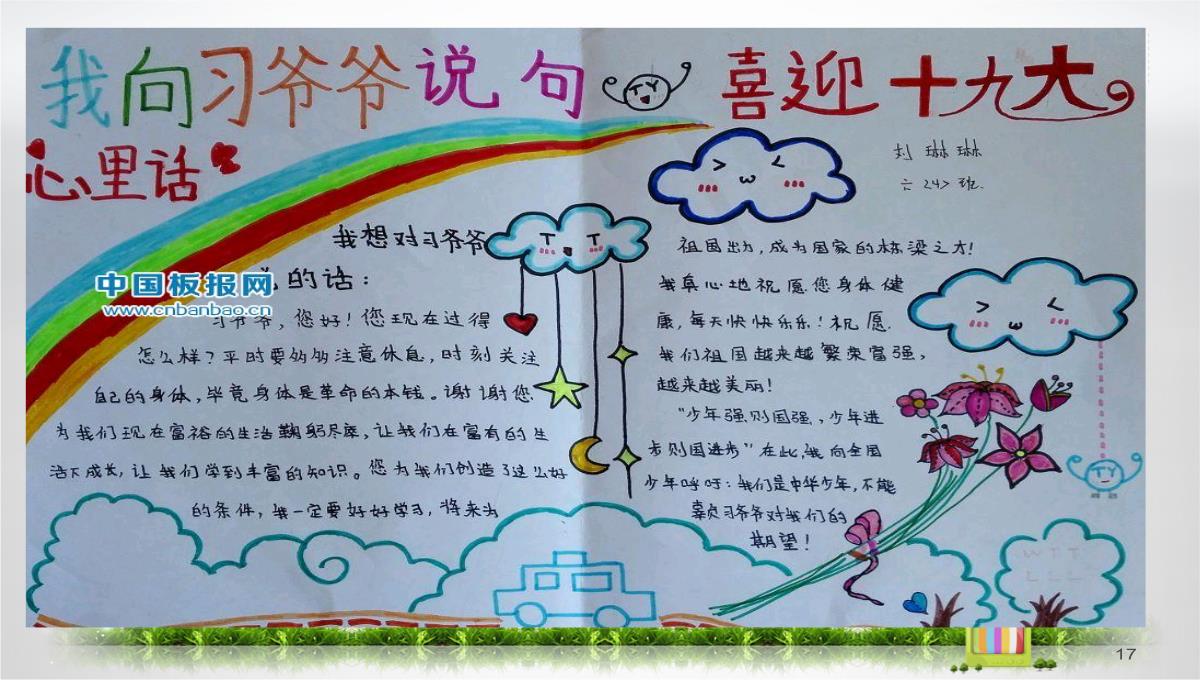 我向习爷爷说句
心里话
喜迎十九大
刘琳琳
六247班.
我想对习爷爷
的话：
中国板报网
www.cnbanbao.cn
习爷爷，您好！您现在过得
怎么样？平时要多多注意休息，时刻关注
自己的身体，毕竟身体是革命的本钱。谢谢您
为我们现在富裕的生活鞠躬尽瘁，让我们在富有的生
活下成长，让我们学到丰富的知识。您为我们创造了这么好
的条件，我一定要好好学习，将来为
祖国出力，成为国家的栋梁之才！
我真心地祝愿您身体健
康，每天快快乐乐！祝愿
我们祖国越来越繁荣富强，
越来越美丽！
“少年强则国强，少年进
步则国进步”在此，我向全国
少年呼吁：我们是中华少年，不能
辜负习爷爷对我们的
期望！
TY
TY
WTT
LLL
17